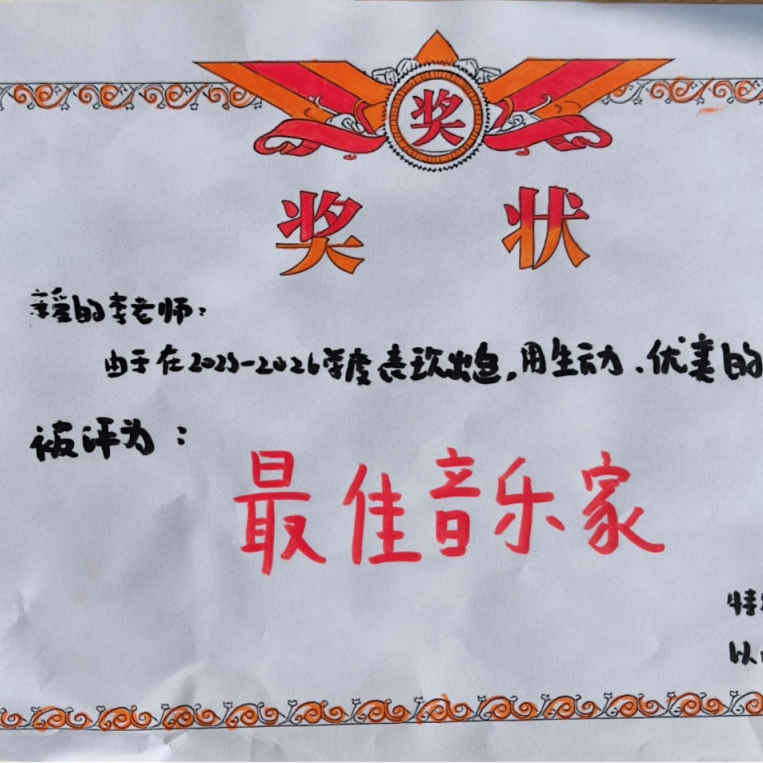 奖
奖 状
亲爱的李老师：
由于在2025-2026学度表现出色，用生动、优美的
被评为：
最佳音乐家
特
以